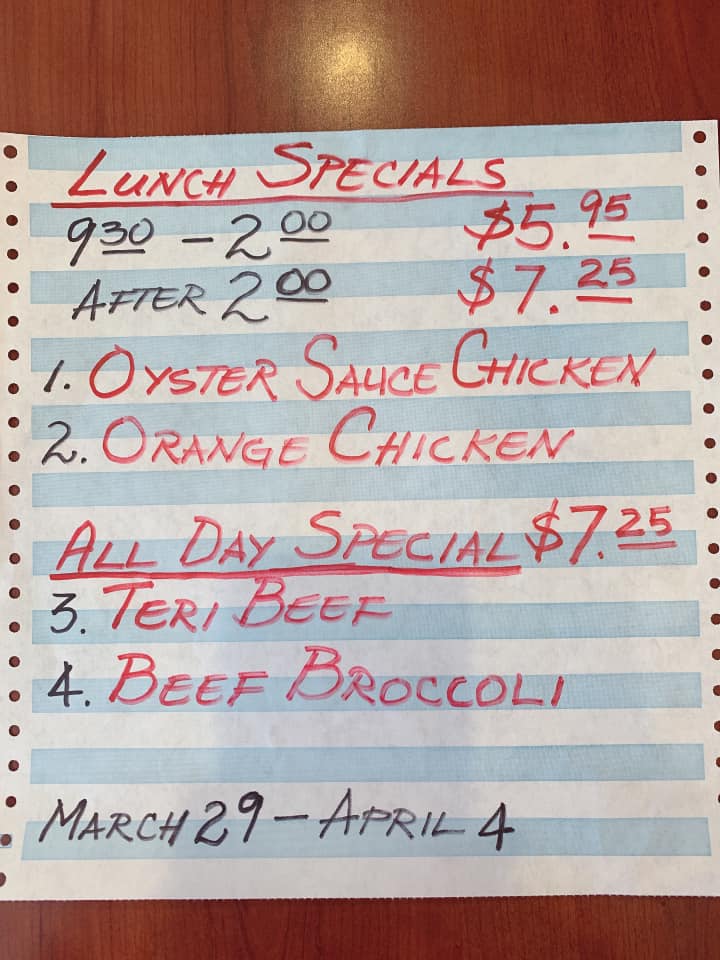 LUNCH SPECIALS
930 - 2 00 $5.95
AFTER 2 00 $7.25
1. OYSTER SAUCE CHICKEN
2. ORANGE CHICKEN
ALL DAY SPECIAL $7.25
3. TERI BEEF
4. BEEF BROCCOLI
MARCH 29 - APRIL 4